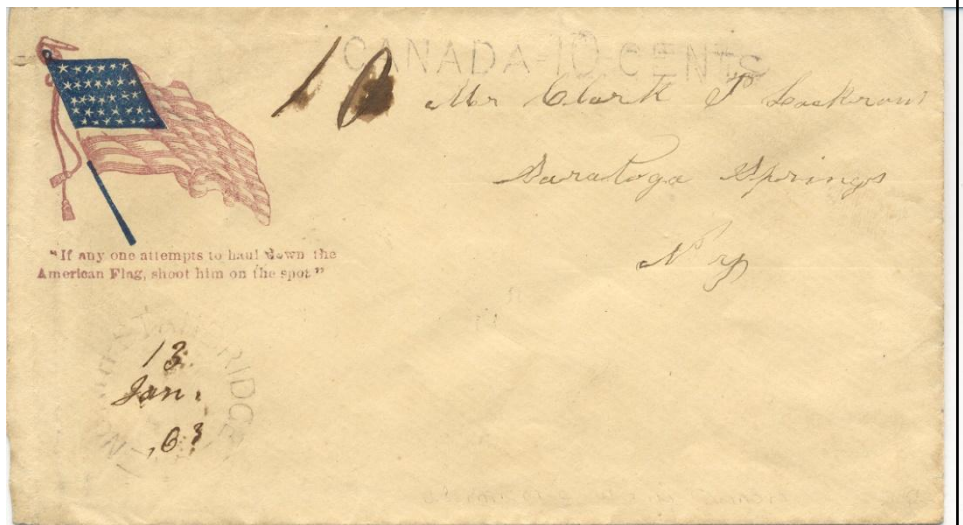 CANADA-10-CENTS
10
Mr Clark
Saratoga Springs
N Y
"If any one attempts to haul down the
American Flag, shoot him on the spot"
13
Jan.
63